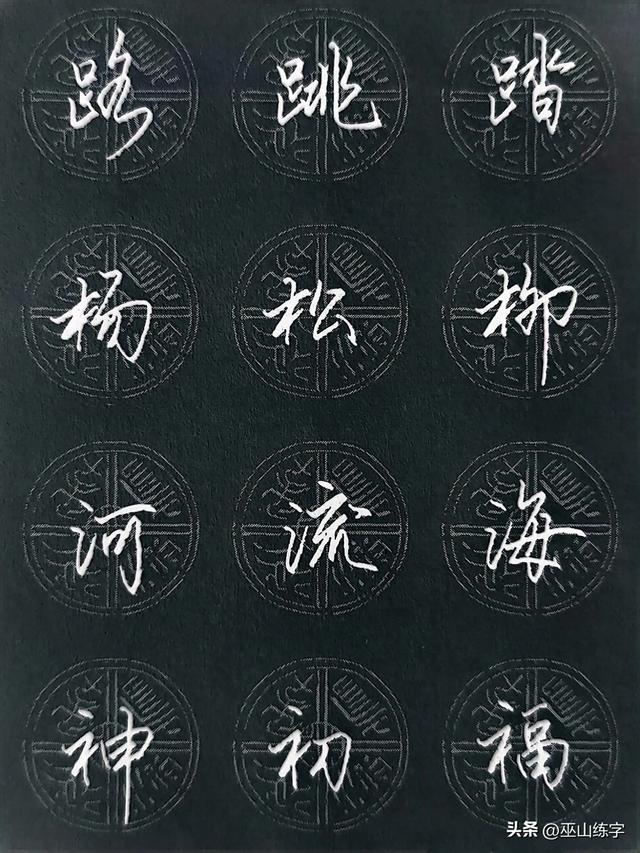 路 跳 踏
杨 松 柳
河 流 海
神 初 福
头条 @巫山练字